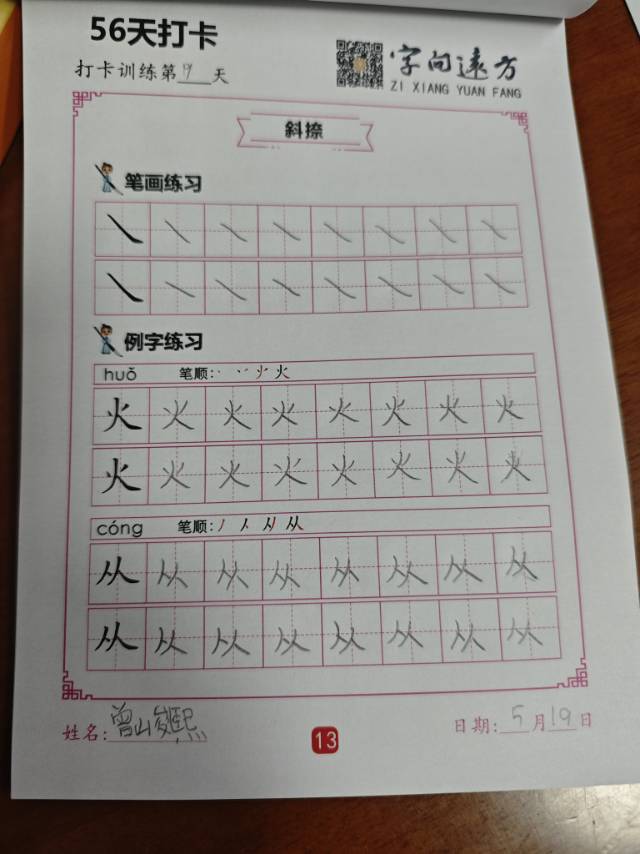 56天打卡
打卡训练第 天
字向远方
ZI XIANG YUAN FANG
斜捺
笔画练习
例字练习
huǒ 笔顺: 火
火 火 火 火 火 火 火 火
火 火 火 火 火 火 火 火
cóng 笔顺: 从
从 从 从 从 从 从 从 从
从 从 从 从 从 从 从 从
姓名: 曾山
13
日期: 5月19日